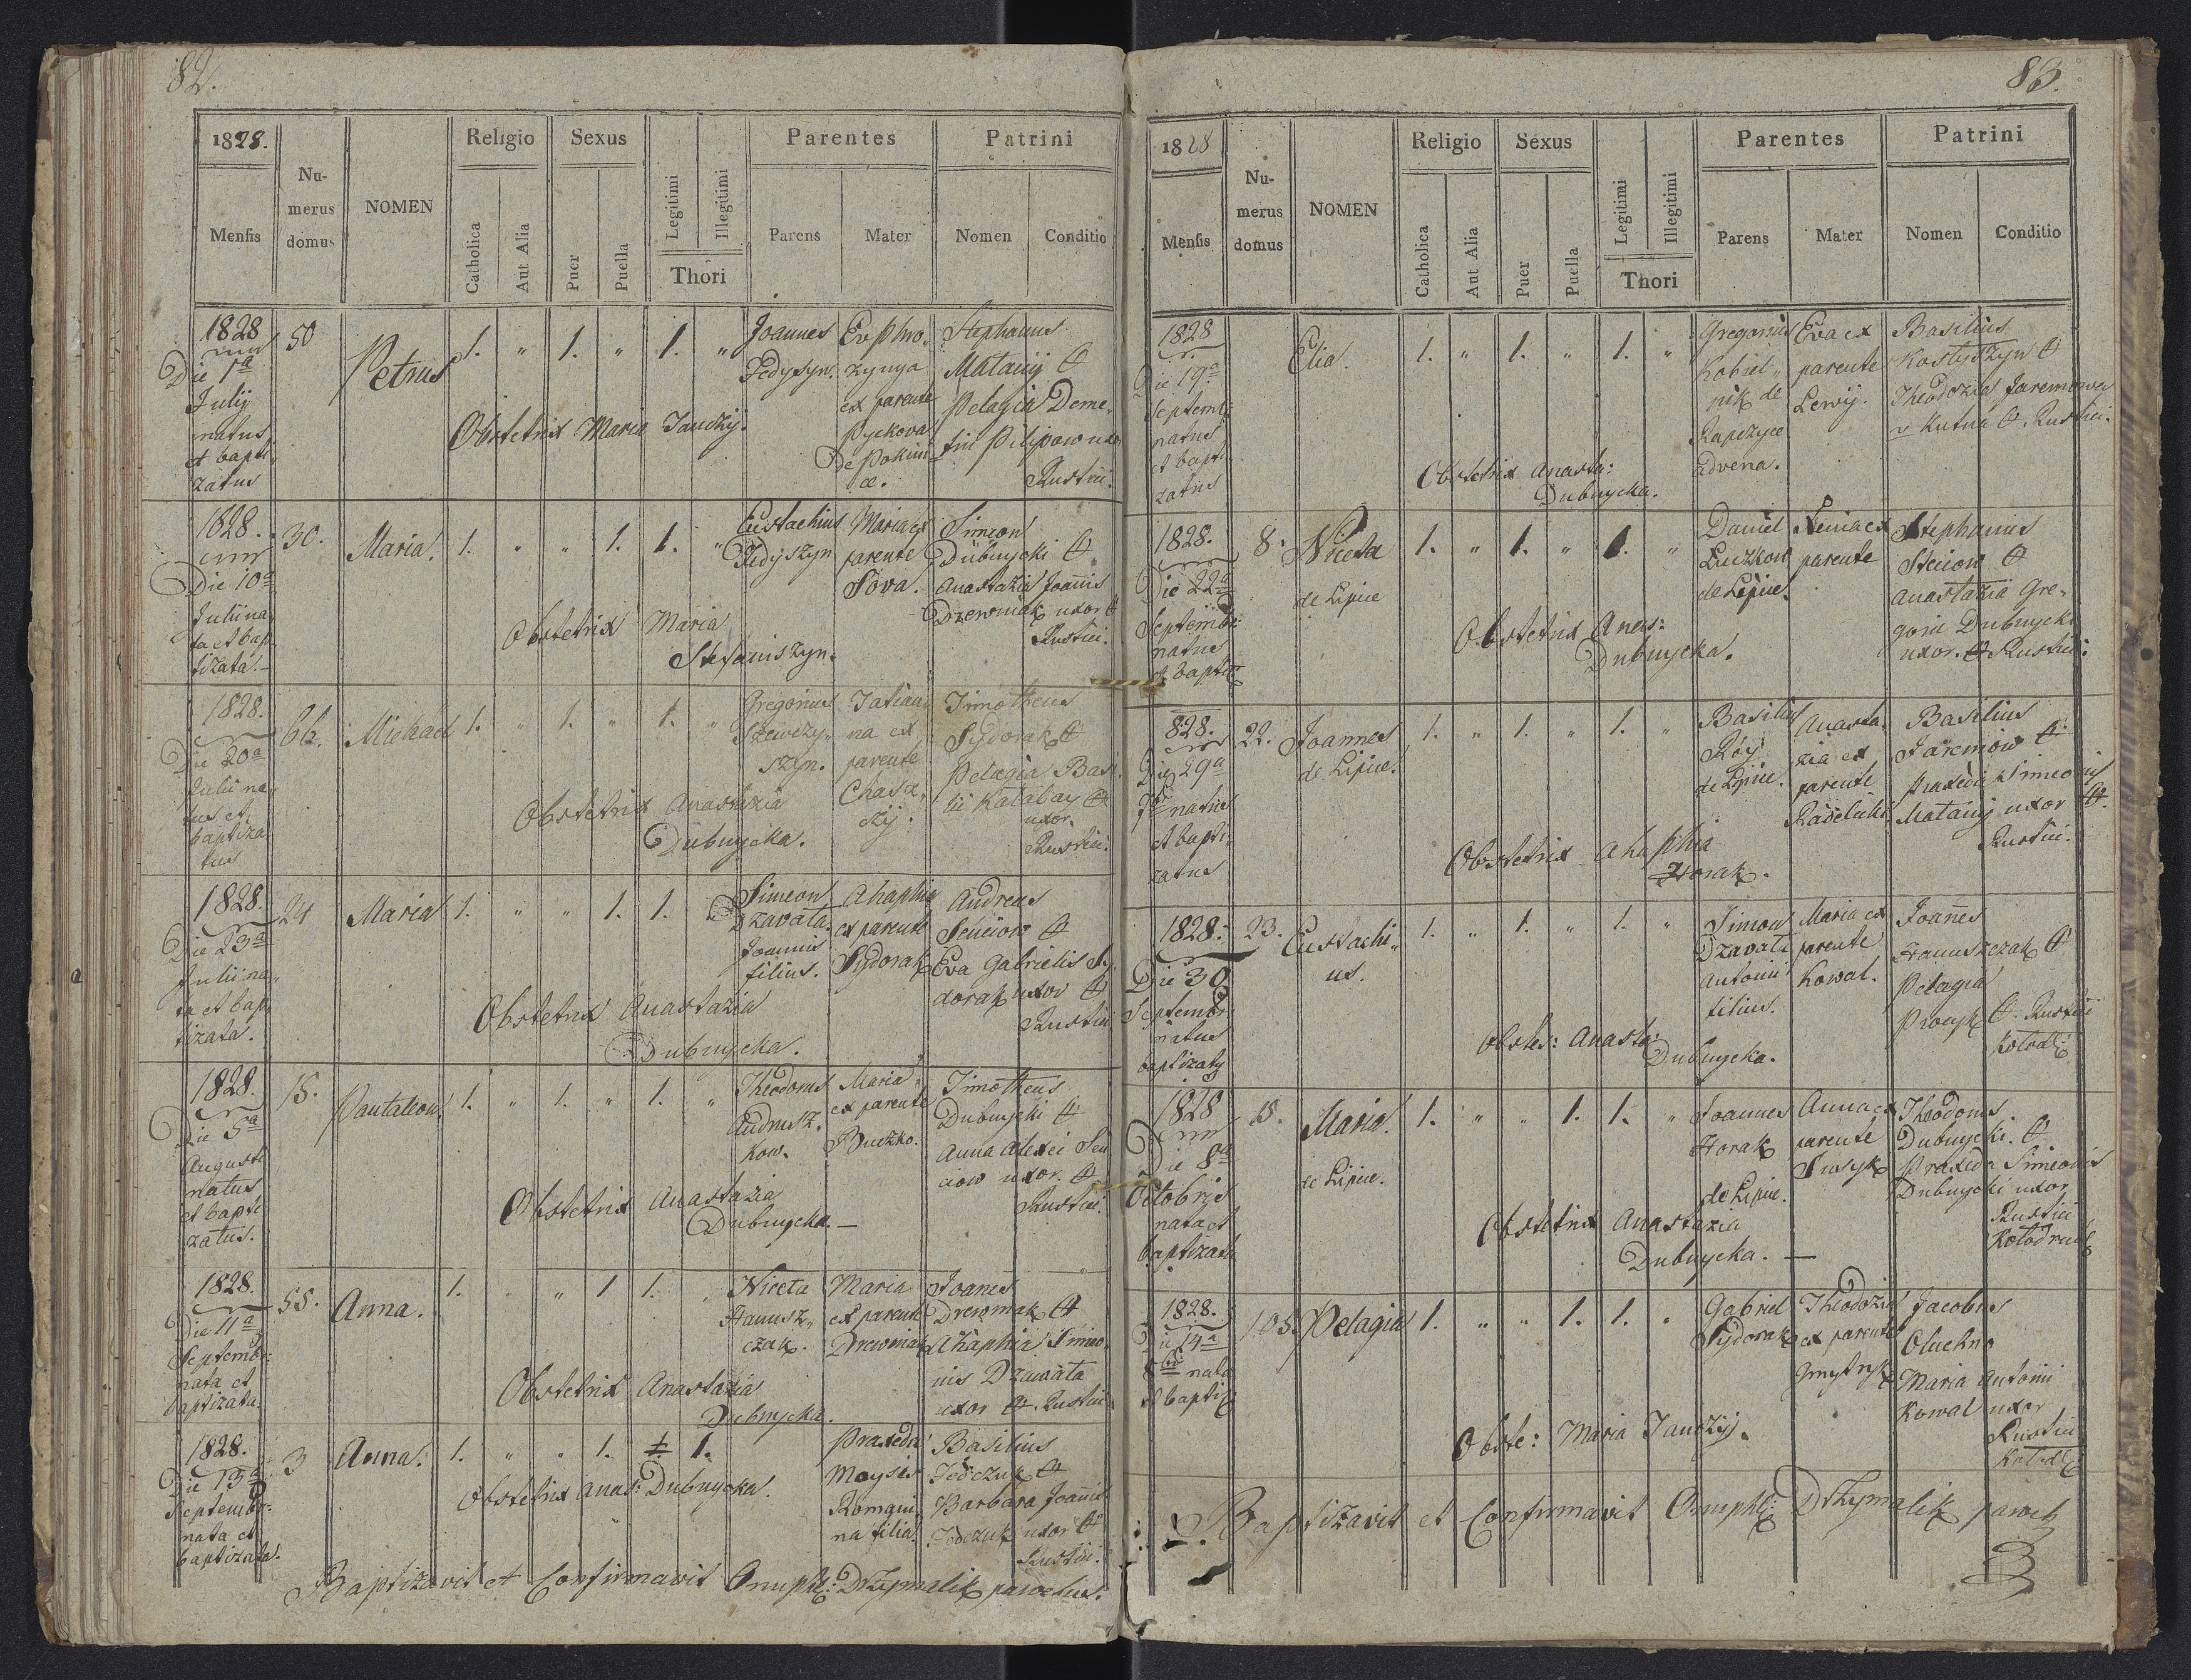 82.
1828.
Nu-
merus
domus
NOMEN
Religio
Sexus
Parentes
Patrini
Mensis
Catholica
Aut Alia
Puer
Puella
Legitimi
Illegitimi
Thori
Parens
Mater
Nomen
Conditio
1828
Die 1ª
Julij
natus
et bapti
zatus
50
Petrus
1. " 1. " 1. "
Joannes
Fedyszyn.
Euphro„
zynya
ex parente
Pyckova
de Pokuni
æ.
Stephanus
Matanij
Pelagia Deme„
trii Pilipow uxor
Rustici.
Obstetrix Maria Janczij.
1828.
Die 10ª
Julii na
ta et bap
tizata.
30.
Maria.
1. " " 1. 1. "
Eustachius
Fedyszyn
Maria ex
parente
Sova.
Simeon
Dubnycki
Anastazia Joannis
Drzewniak uxor
Rustici.
Obstetrix Maria
Stefaniszyn.
1828.
Die 20ª
Julii na
tus et
baptiza
tus
Michael
1. " 1. " 1. "
Gregorius
Szewczy„
szyn.
Tatian
na ex
parente
Chasz„
czij.
Timotheus
Sydorak
Pelagia Basi
lii Kalabay
uxor.
Rustici.
Obstetrix Anastazia
Dubnycka.
1828.
Die 23ª
Julii na„
ta et bap
tizata.
24
Maria
1. " " 1. 1. "
Simeon
Dzavata.
Joannis
filius.
Ahaphia
ex parente
Sydorak
Andreas
Senciow
Eva Gabrielis Sy„
dorak uxor
Rustici
Obstetrix Anastazia
Dubnycka.
1828.
Die 5ª
Augusti
natus
et bapti
zatus.
15.
Pantaleon.
1. " 1. " 1. "
Theodorus
Andrusz.
kow.
Maria
ex parente
Buczko.
Timotheus
Dubnycki
Anna Alexei Sen
ciow uxor.
Rustici.
Obstetrix Anastazia
Dubnycka.—
1828.
Die 11ª
Septembr:
nata et
baptizata
55.
Anna.
1. " 1 1. "
Niceta
Hanusz„
czak.
Maria
ex parente
Drewniak
Joannes
Drewniak
Ahaphia Simeo„
nis Dzawata
uxor Rustici
Obstetrix Anastazia
Dubnycka.
1828.
Die 13ª
Septembr:
nata et
baptizata.
3
Anna.
1. " " 1. 1 1.
Praxeda
Moysis
Romani„
na filia.
Basilius
Fedczuk
Barbara Joannis
Fedczuk uxor
Rustici.
Obstetrix Anas: Dubnycka.
Baptizavit et Confirmavit Onuph: Drzymalik parochus.
83.
1828
Nu-
merus
domus
NOMEN
Religio
Sexus
Parentes
Patrini
Mensis
Catholica
Aut Alia
Puer
Puella
Legitimi
Illegitimi
Thori
Parens
Mater
Nomen
Conditio
1828
Die 19ª
Septemb:
natus
et bapti
zatus
Elia.
1. " 1. " 1. "
Gregorius
Kobiel„
nik de
Rapczyce
advena.
Eva ex
parente
Lewij.
Basilius
Kostyszyn
Theodozia Jaremowa
Kutna Rustici.
Obstetrix Anasta:
Dubnycka.
1828.
Die 22ª
Septembr:
natus
et bapti
8.
Niceta
de Lipice
1. " 1. " 1. "
Daniel
Luczkow
de Lipice.
Xenia ex
parente
Stephanus
Steciow
Anastazia Gre„
gorii Dubnycki
uxor. Rustici.
Obstetrix Anas:
Dubnycka.
828.
Die 29ª
natus
et bapti
zatus
22.
Joannes
de Lipice.
1. " 1. " 1. "
Basilius
Roy
de Lipice.
Anasta„
zia ex
parente
Radelicki
Basilius
Jaremiow
Praxeda Simeonis
Matanij uxor
Rustici.
Obstetrix Ahaphia
Horak.
1828.
Die 30
Septembr
natus
baptizatq
23.
Eustachi„
us.
1. " 1. " 1. "
Simeon
Dzavata
Antonii
filius.
Maria ex
parente
Kowal.
Joannes
Hanuszczak
Pelagia
Procyk Rustici
Kolod:
Obstet: Anasta:
Dubnycka.
1828
Die 8ª
Octobris
nata et
baptizata
18.
Maria.
de Lipice.
1. " " 1. 1. "
Joannes
Horak
de Lipice.
Anna ex
parente
Jusyk
Theodorus
Dubnycki.
Praxeda Simeonis
Dubnycki uxor
Rustici
Kolodrub
Obstetrix Anastazia
Dubnycka. —
1828.
Die 14ª
8bris nata
et baptiz
105.
Pelagia
1. " " 1. 1. "
Gabriel
Sydorak
Theodozia
ex parente
Gmytryk
Jacobus
Oluchno
Maria Antonii
Kowal uxor
Rustici
Kolod:
Obste: Maria Janczij.
Baptizavit et Confirmavit Onuph: Drzymalik paroch